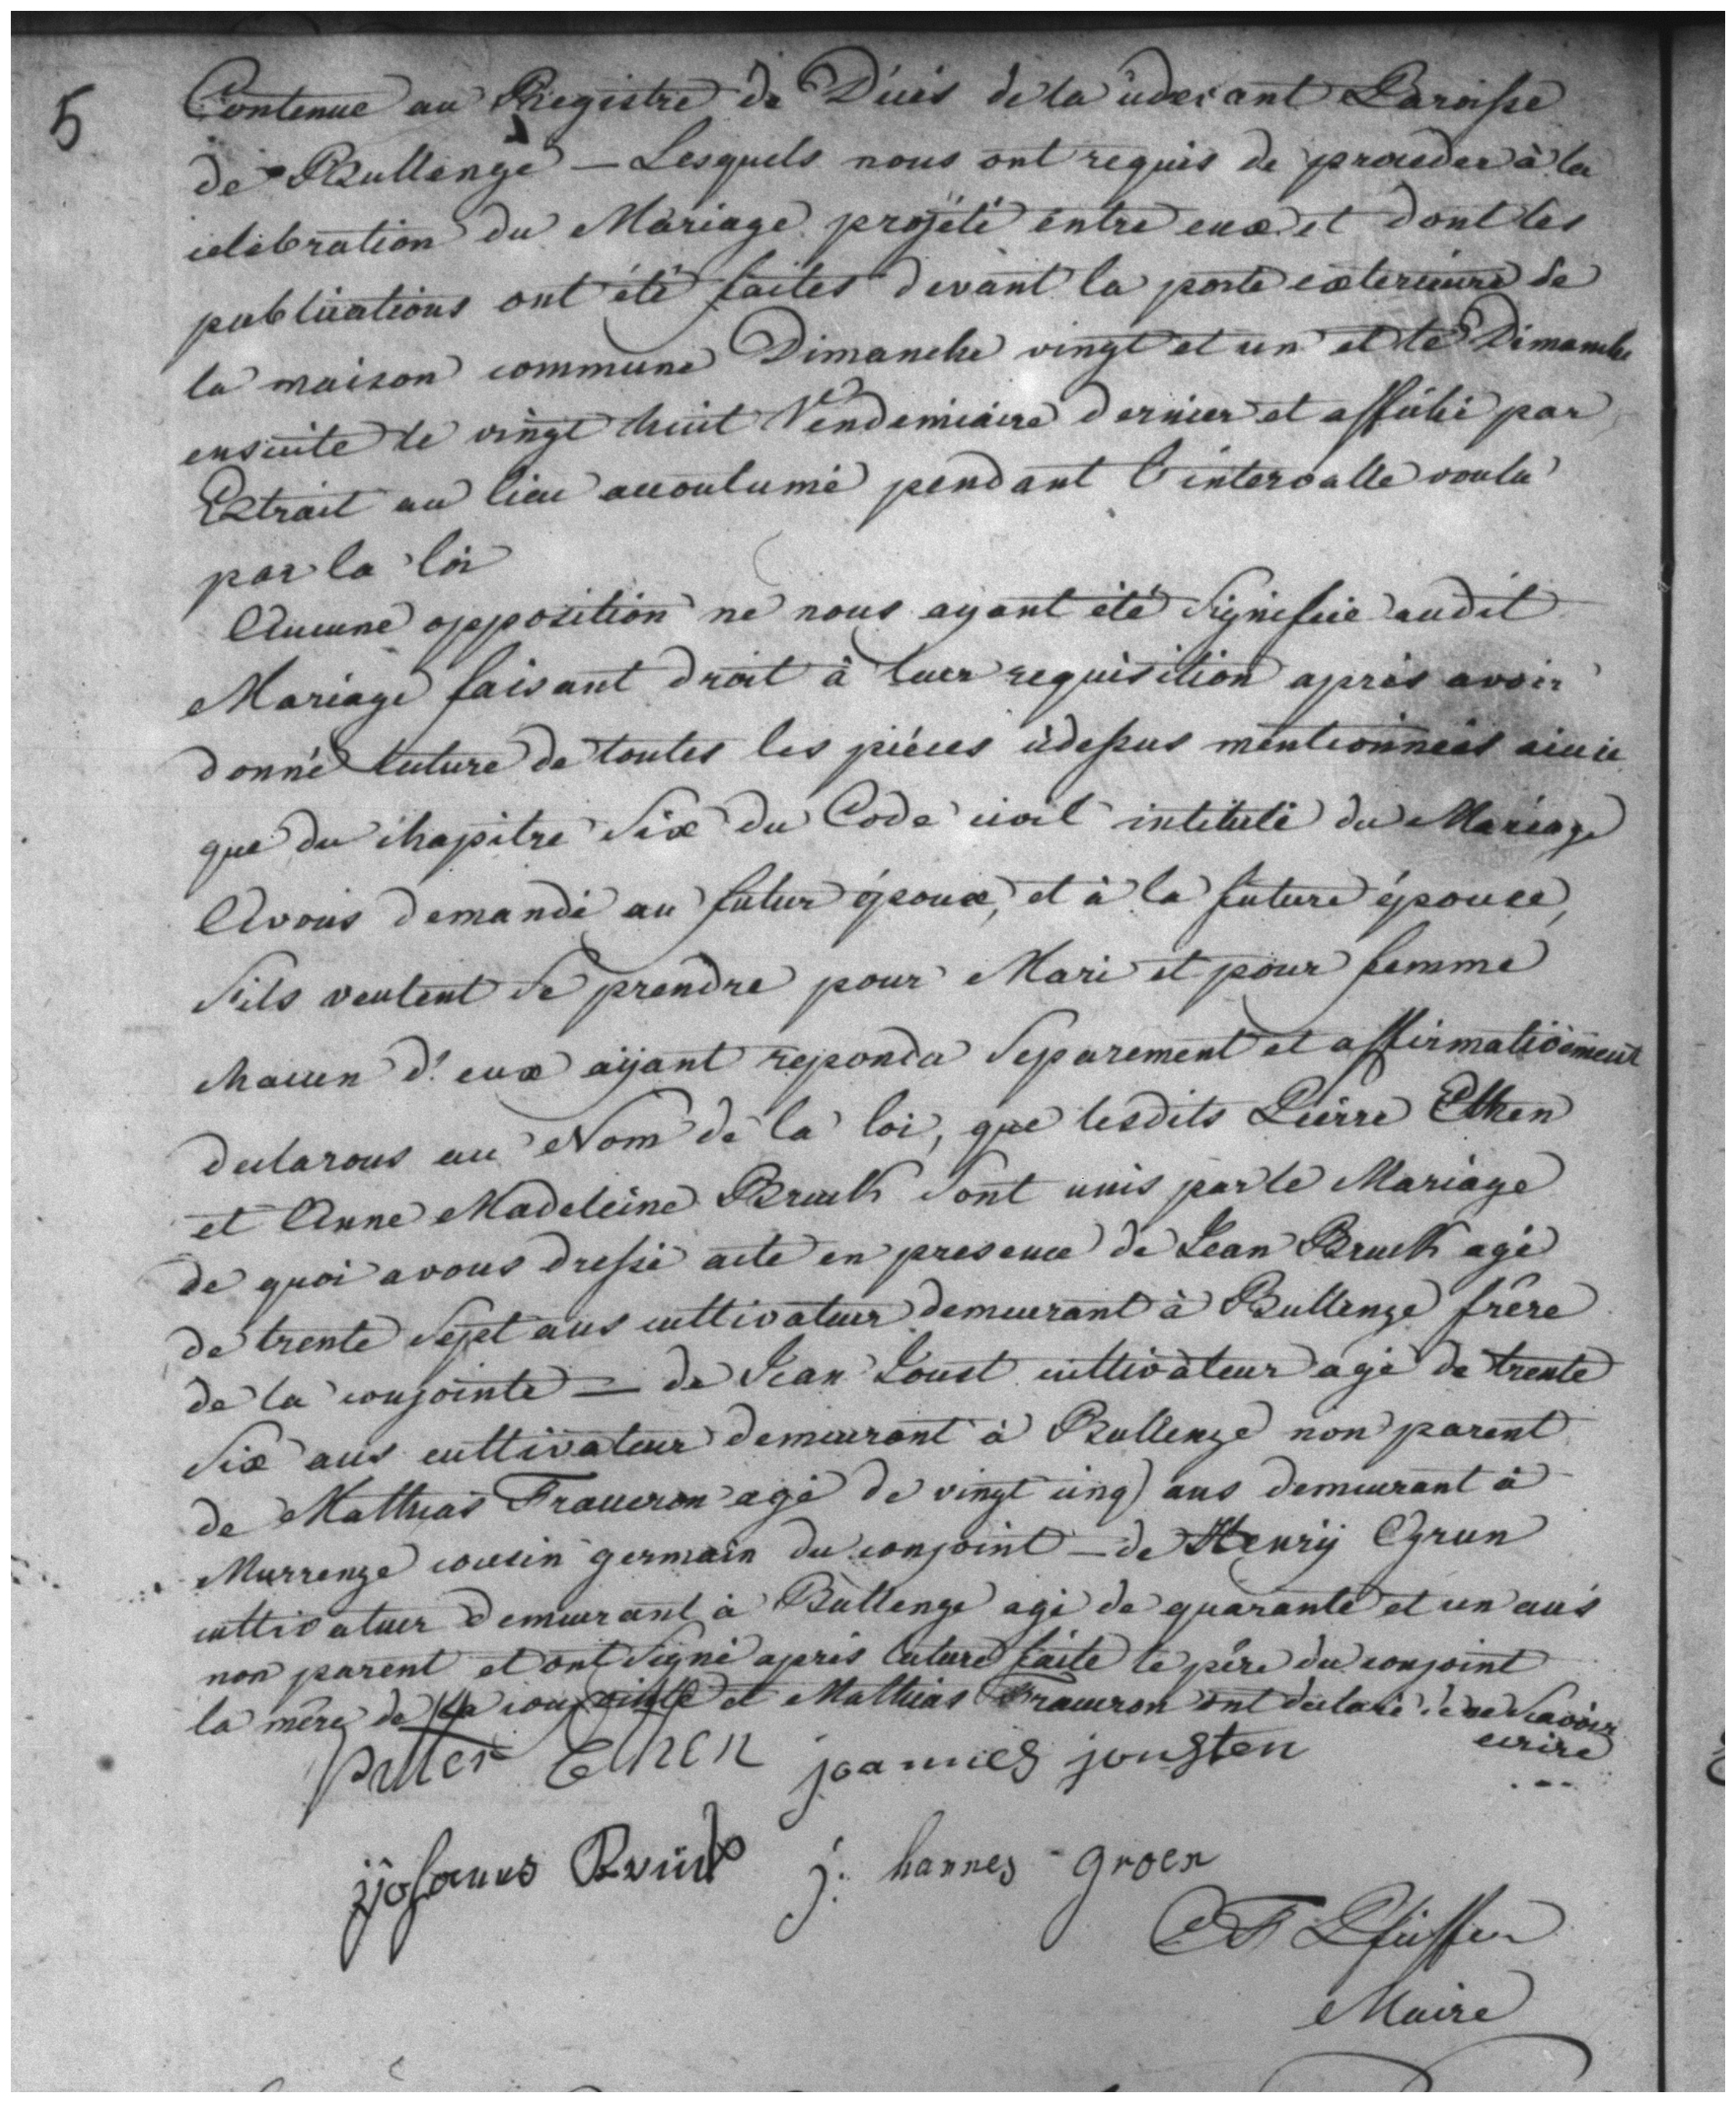 5
Contenue au Registre de Décès de la cidevant Paroisse
de Bullenge – Lesquels nous ont requis de proceder à la
celebration du Mariage projété entre eux et dont les
publications ont été faites devant la porte exterieure de
la maison commune Dimanche vingt et un et le Dimanche
ensuite le vingt huit Vendemiaire dernier et affiché par
Extrait au lieu accoutumé pendant l'intervalle voulu
par la loi
Aucune opposition ne nous ayant été signifiée audit
Mariage faisant droit à luer requisition après avoir
donné lecture de toutes les piéces cidessus mentionnées ainsi
que du chapitre Six du Code civil intitulé du Mariage
Avons demandé au futur époux, et à la future épouse,
s'ils veulent se prendre pour Mari et pour femme
chacun d'eux aÿant repondu separement et affirmativement
declarons au Nom de la loi, que lesdits Pierre Ethen
et Anne Madeleine Bruck sont unis par le Mariage
de quoi avons dressé acte en presence de Jean Bruck agé
de trente sept ans cultivateur demeurant à Bullenge frère
de la conjointe – de Jean Joust cultivateur agé de trente
six ans cultivateur demeurant à Bullenge non parent
de Mathias Fraucron agé de vingt cinq ans demeurant à
Murrenge cousin germain du conjoint – de Henrÿ Grun
cultivatuer demeurant à Bullenge agé de quarante et un ans
non parent et ont signé après lecture faite le père du conjoint
la mère de la conjointe et Mathias Fraucron ont declaré de ne scavoir
ecrire
Petter Ethen joannes jousten
Johannes Bruck j: hannes groen
Maire